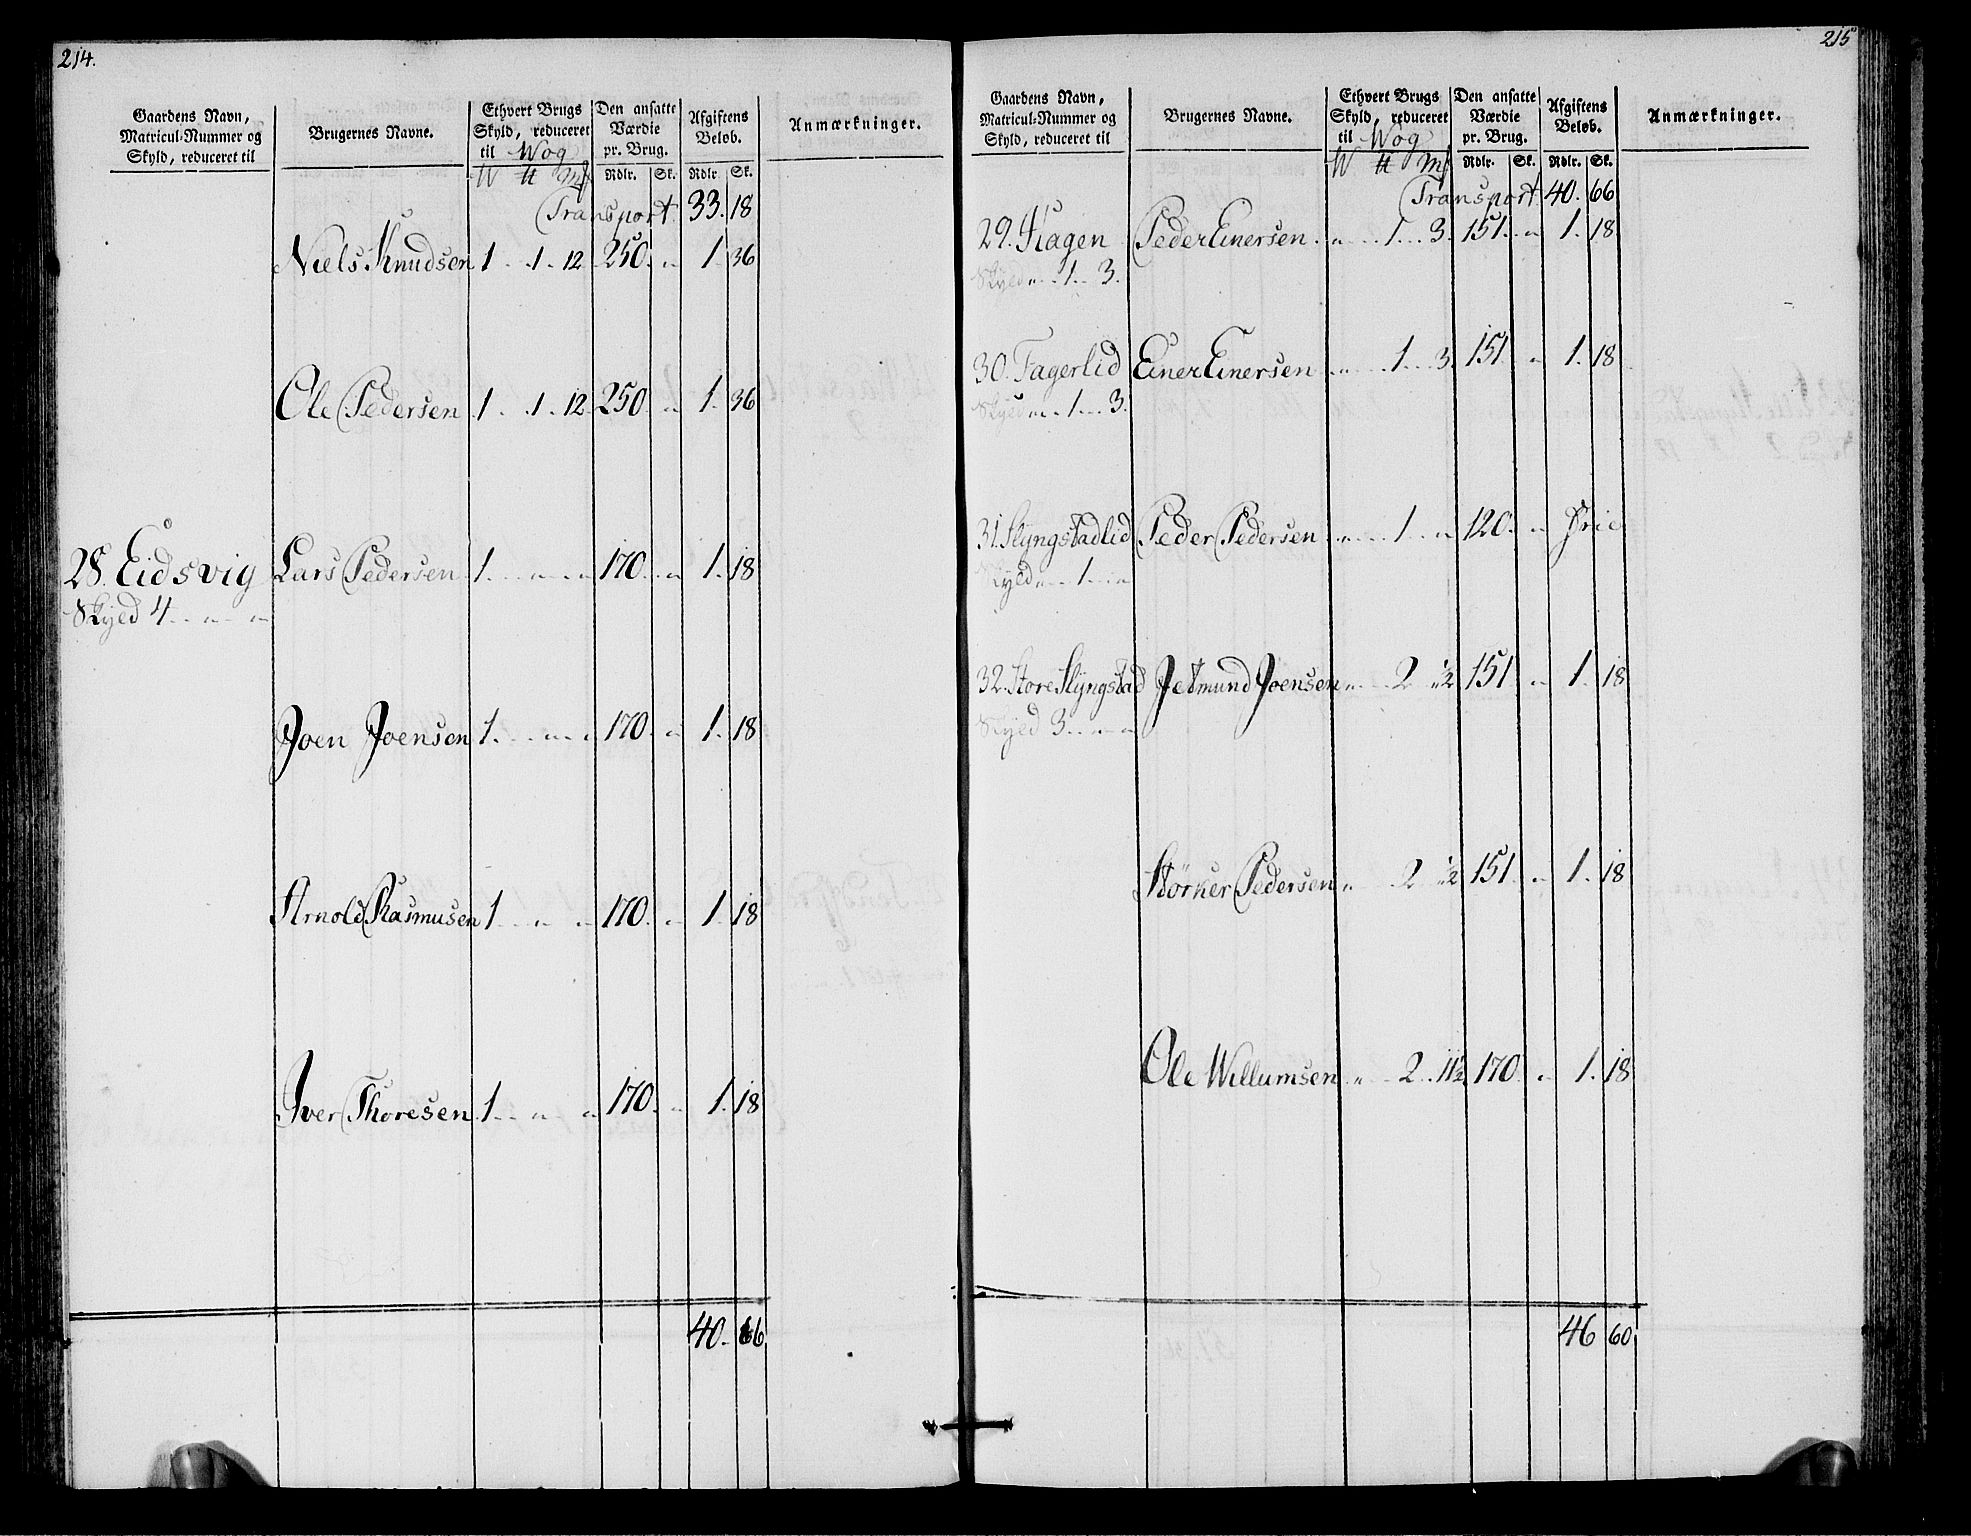 214.
Gaardens Navn, Matricul-Nummer og Skyld, reduceret til | Brugernes Navne. | Ethvert Brugs Skyld, reduceret til Wog | Den ansatte Værdie pr. Brug. | Afgiftens Beløb. | Anmærkninger.
W ℔ Mk | Rdlr. Sk. | Rdlr Sk.
Transport 33. 18
Niels Knudsen 1 . . 1 . 12 250. „ 1. 36
Ole Pedersen 1 . . 1 . 12 250. „ 1. 36
28. Eidsvig Lars Pedersen 1 . . „ . . „ 170. „ 1. 18
Skyld 4 . . „ . . „
Joen Joensen 1 . . „ . . „ 170. „ 1. 18
Arnold Rasmusen 1 . . „ . . „ 170. „ 1. 18
Iver Thoresen 1 . . „ . . „ 170. „ 1. 18
40. 66
215
Gaardens Navn, Matricul-Nummer og Skyld, reduceret til | Brugernes Navne. | Ethvert Brugs Skyld, reduceret til Wog | Den ansatte Værdie pr. Brug. | Afgiftens Beløb. | Anmærkninger.
W ℔ Mk | Rdlr. Sk. | Rdlr. Sk.
Transport 40. 66
29. Hagen Peder Einersen „ . . 1 . . 3. 151. „ 1. 18
Skyld „ . . 1 . . 3.
30. Fagerlid Einer Einersen „ . . 1 . . 3. 151 „ 1. 18
Skyld „ . . 1 . . 3.
31. Slyngstadlid Peder Pedersen „ . . 1 . . „ 120. „ frie
Skyld „ . . 1 . . „
32. Store Slyngstad Jetmund Joensen „ . . 2 „½ 151 „ 1. 18
Skyld 3 . . „ . . „
Störker Pedersen „ . . 2 „½ 151. „ 1. 18
Ole Willumsen „ . . 2 . . 11½ 170. „ 1. 18
46 60